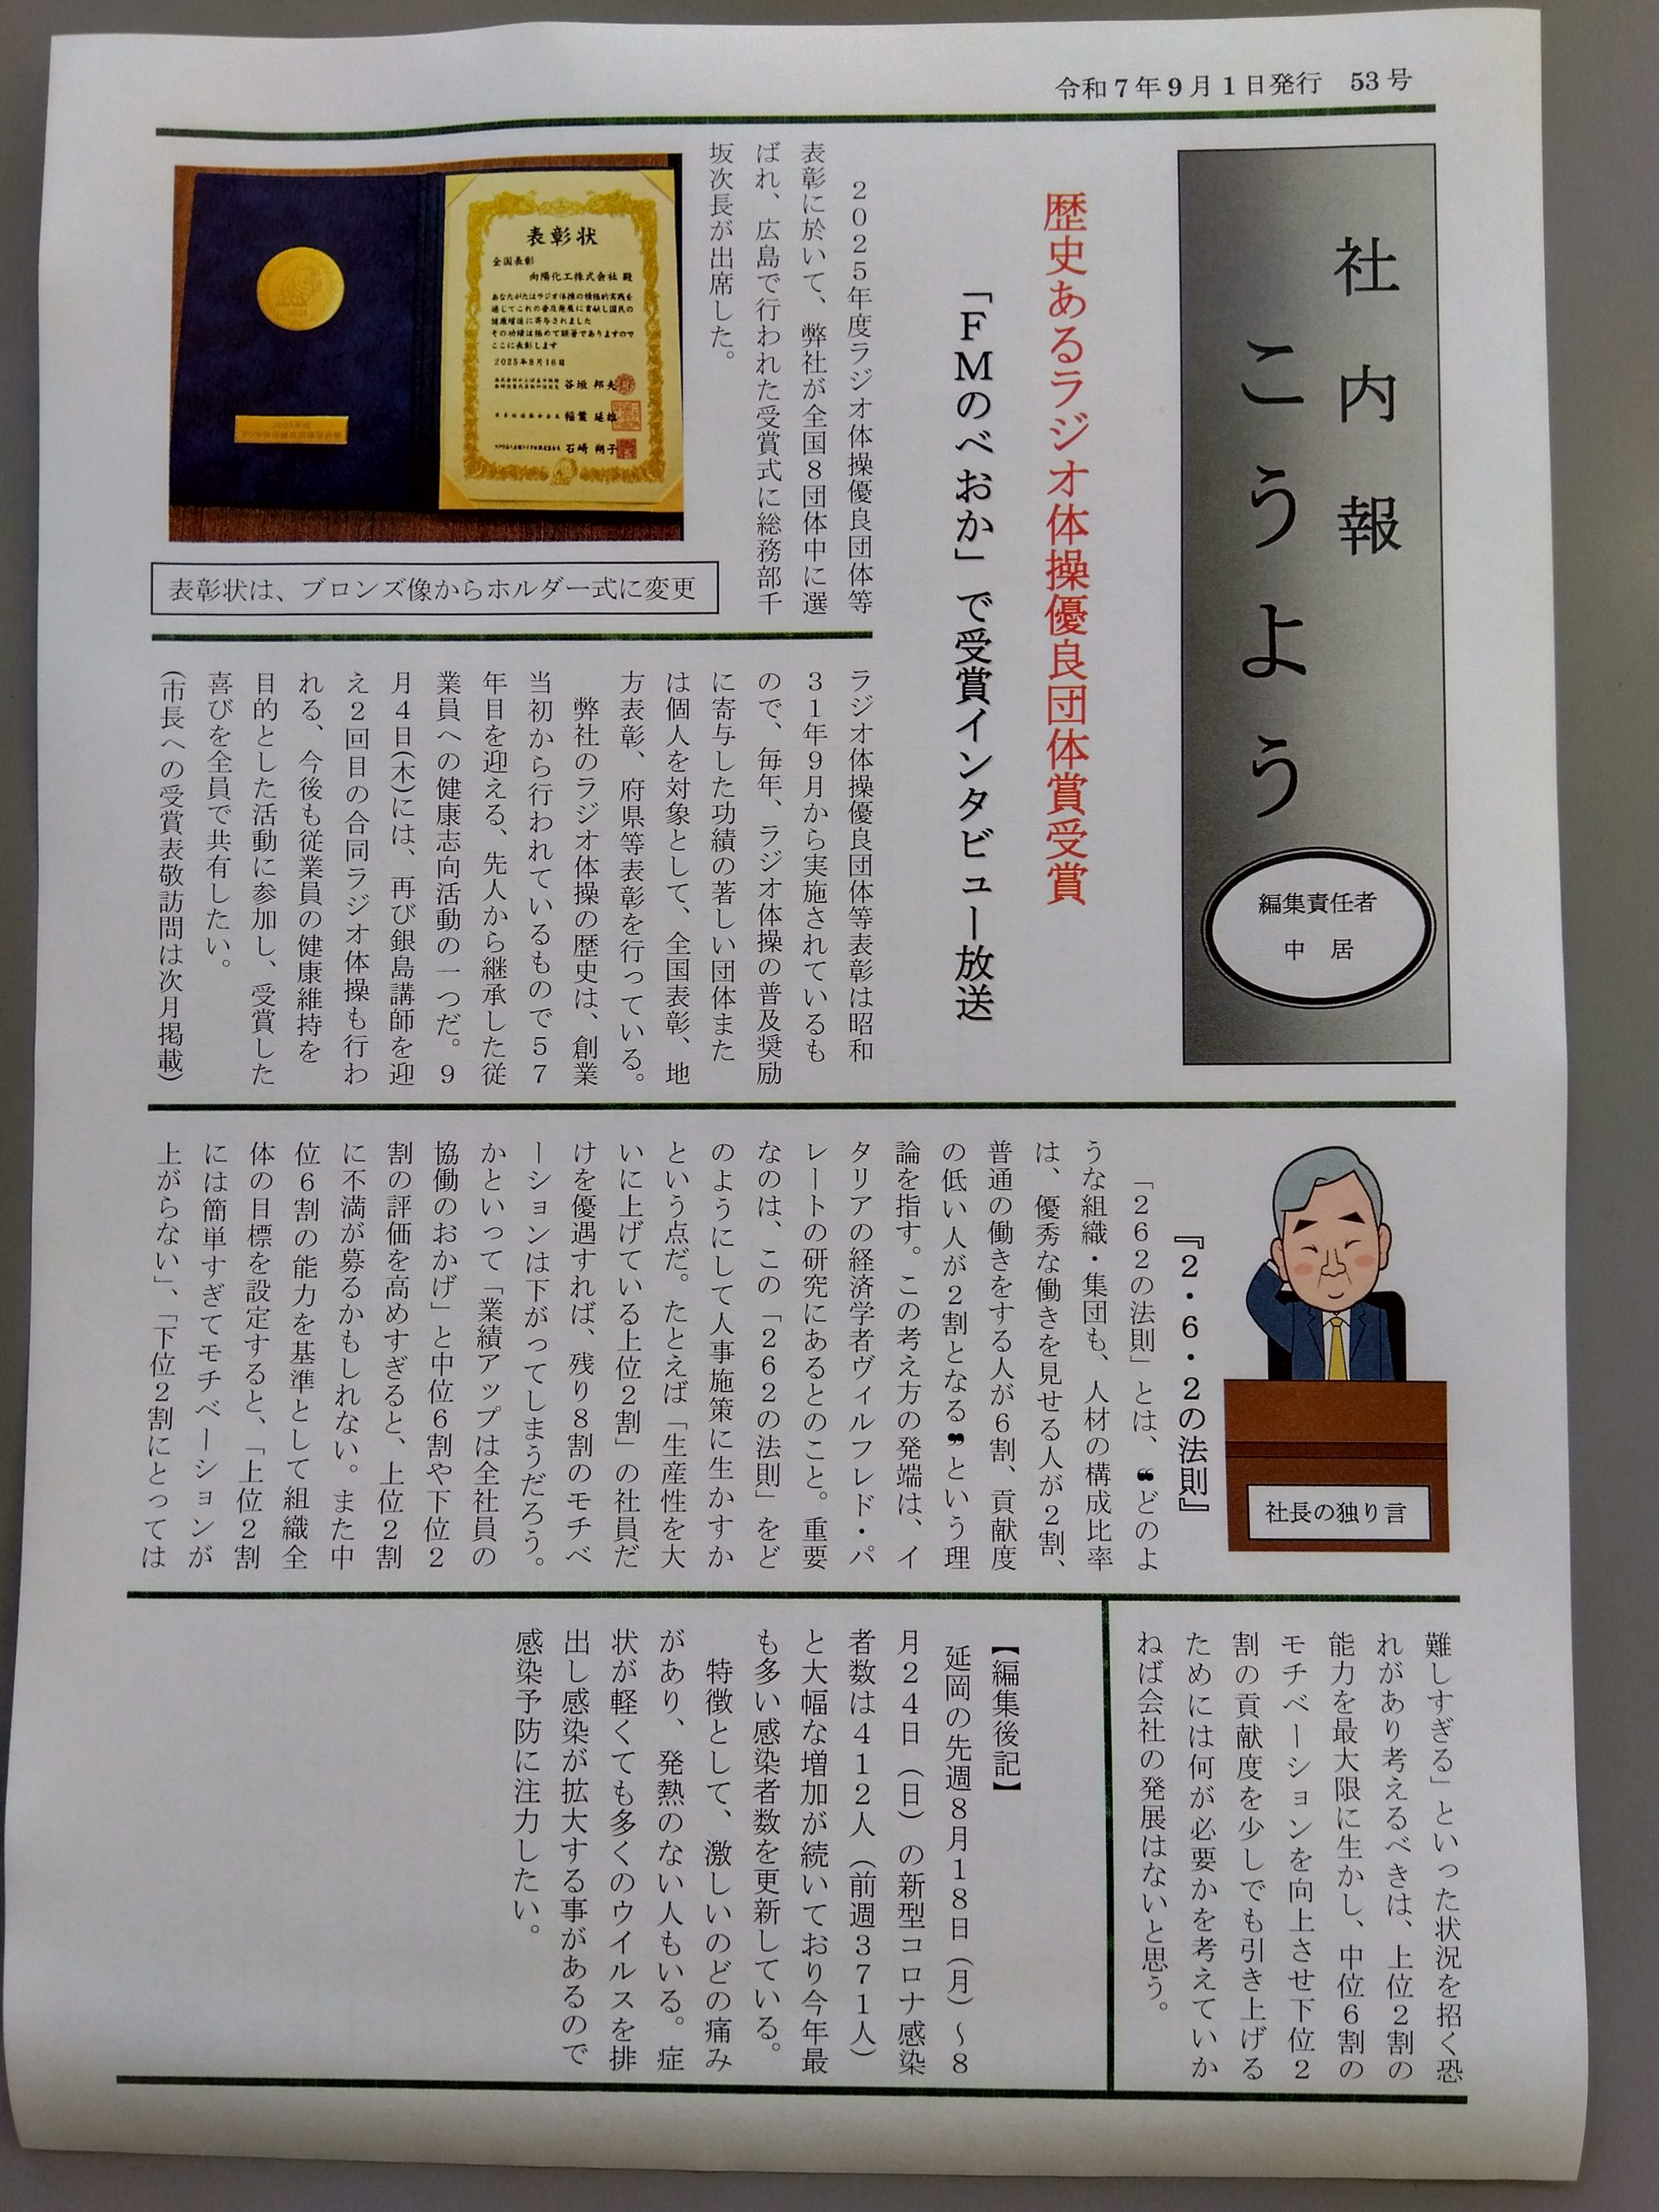 令和7年9月1日発行　53号
社内報
こうよう
編集責任者
中　居
歴史あるラジオ体操優良団体賞受賞
「FMのべおか」で受賞インタビュー放送
２０２５年度ラジオ体操優良団体等
表彰に於いて、弊社が全国８団体中に選
ばれ、広島で行われた受賞式に総務部千
坂次長が出席した。
表彰状
全国表彰
向陽化工株式会社 殿
あなたがたはラジオ体操の積極的実践を
通じてこれの普及発展に貢献し国民の
健康増進に寄与されました
その功績は極めて顕著でありますので
ここに表彰します
2025年8月16日
谷垣 邦夫
稲葉 延雄
石崎 朔子
表彰状は、ブロンズ像からホルダー式に変更
ラジオ体操優良団体等表彰は昭和
３１年９月から実施されているも
ので、毎年、ラジオ体操の普及奨励
に寄与した功績の著しい団体また
は個人を対象として、全国表彰、地
方表彰、府県等表彰を行っている。
弊社のラジオ体操の歴史は、創業
当初から行われているもので５７
年目を迎える、先人から継承した従
業員への健康志向活動の一つだ。９
月４日(木)には、再び銀島講師を迎
え２回目の合同ラジオ体操も行わ
れる、今後も従業員の健康維持を
目的とした活動に参加し、受賞した
喜びを全員で共有したい。
(市長への受賞表敬訪問は次月掲載)
社長の独り言
『２・６・２の法則』
「２６２の法則」とは、❝どのよ
うな組織・集団も、人材の構成比率
は、優秀な働きを見せる人が２割、
普通の働きをする人が６割、貢献度
の低い人が２割となる❞という理
論を指す。この考え方の発端は、イ
タリアの経済学者ヴィルフレド・パ
レートの研究にあるとのこと。重要
なのは、この「２６２の法則」をど
のようにして人事施策に生かすか
という点だ。たとえば「生産性を大
いに上げている上位２割」の社員だ
けを優遇すれば、残り８割のモチベ
ーションは下がってしまうだろう。
かといって「業績アップは全社員の
協働のおかげ」と中位６割や下位２
割の評価を高めすぎると、上位２割
に不満が募るかもしれない。また中
位６割の能力を基準として組織全
体の目標を設定すると、「上位２割
には簡単すぎてモチベーションが
上がらない」、「下位２割にとっては
難しすぎる」といった状況を招く恐
れがあり考えるべきは、上位２割の
能力を最大限に生かし、中位６割の
モチベーションを向上させ下位２
割の貢献度を少しでも引き上げる
ためには何が必要かを考えていか
ねば会社の発展はないと思う。
【編集後記】
延岡の先週８月１８日（月）～８
月２４日（日）の新型コロナ感染
者数は４１２人（前週３７１人）
と大幅な増加が続いており今年最
も多い感染者数を更新している。
特徴として、激しいのどの痛み
があり、発熱のない人もいる。症
状が軽くても多くのウイルスを排
出し感染が拡大する事があるので
感染予防に注力したい。